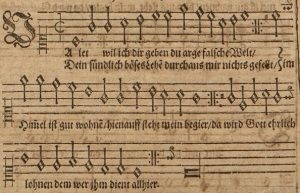 Valet wil ich dir geben du arge falsche Welt/
Dein sündlich böses Lebē durchaus mir nichts gefelt/ Jm
Himel ist gut wohnē/hienauff steht mein begier/da wird Gott ehrlich
lohnen dem wer jhm dient allhier.